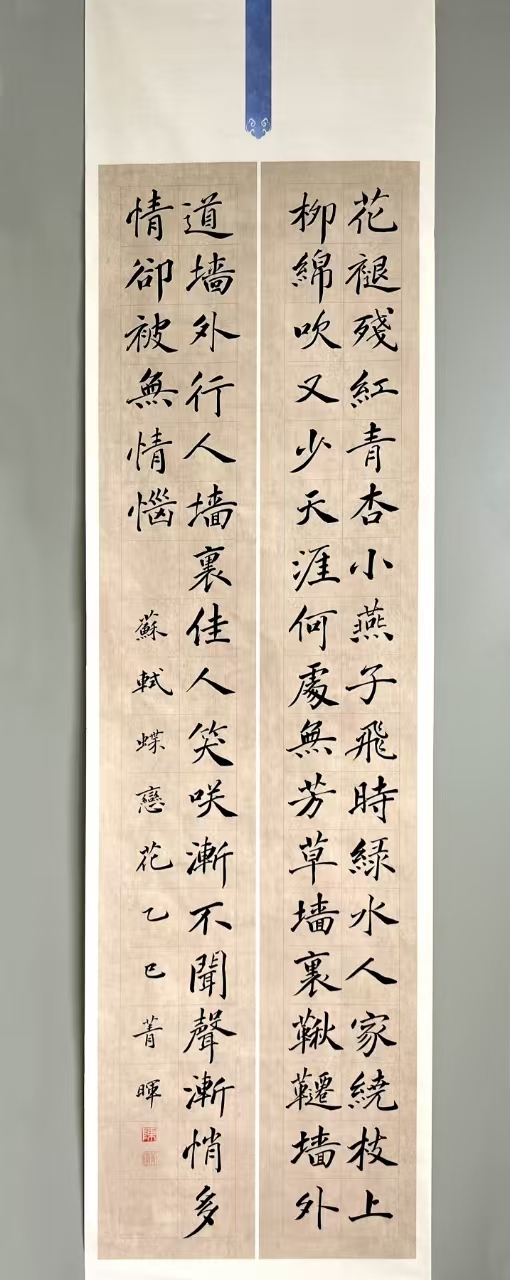 花褪殘紅青杏小燕子飛時緑水人家繞枝上
柳綿吹又少天涯何處無芳草墻裏鞦韆墻外
道墻外行人墻裏佳人笑咲漸不聞聲漸悄多
情卻被無情惱
蘇軾蝶戀花乙巳菁暉